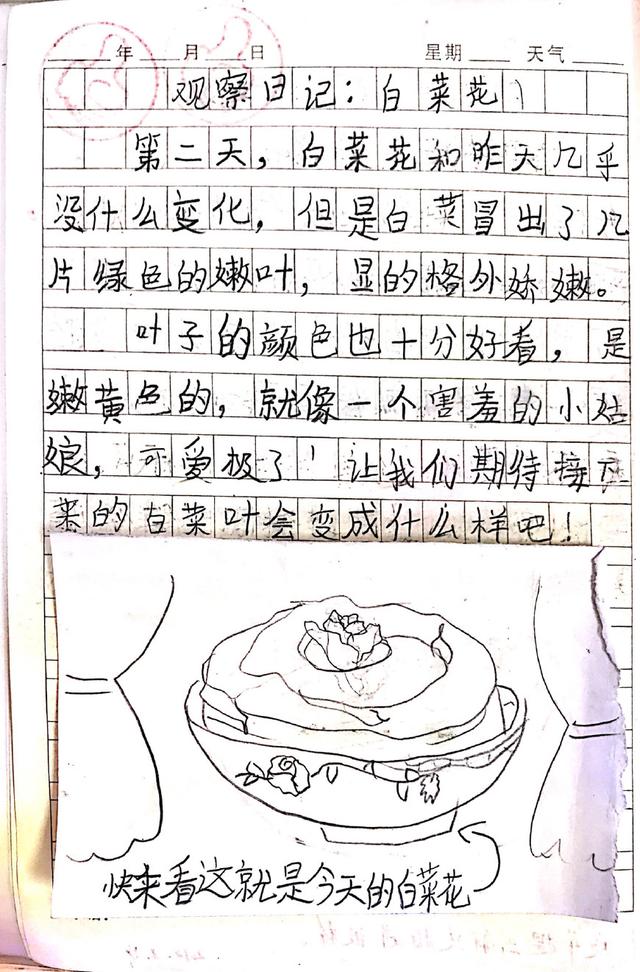 年 月 日 星期 天气
观察日记:白菜花
第二天,白菜花和昨天几乎
没什么变化,但是白菜冒出了几
片绿色的嫩叶,显的格外娇嫩。
叶子的颜色也十分好看,是
嫩黄色的,就像一个害羞的小姑
娘,可爱极了!让我们期待接下
来的白菜叶会变成什么样吧!
快来看这就是今天的白菜花